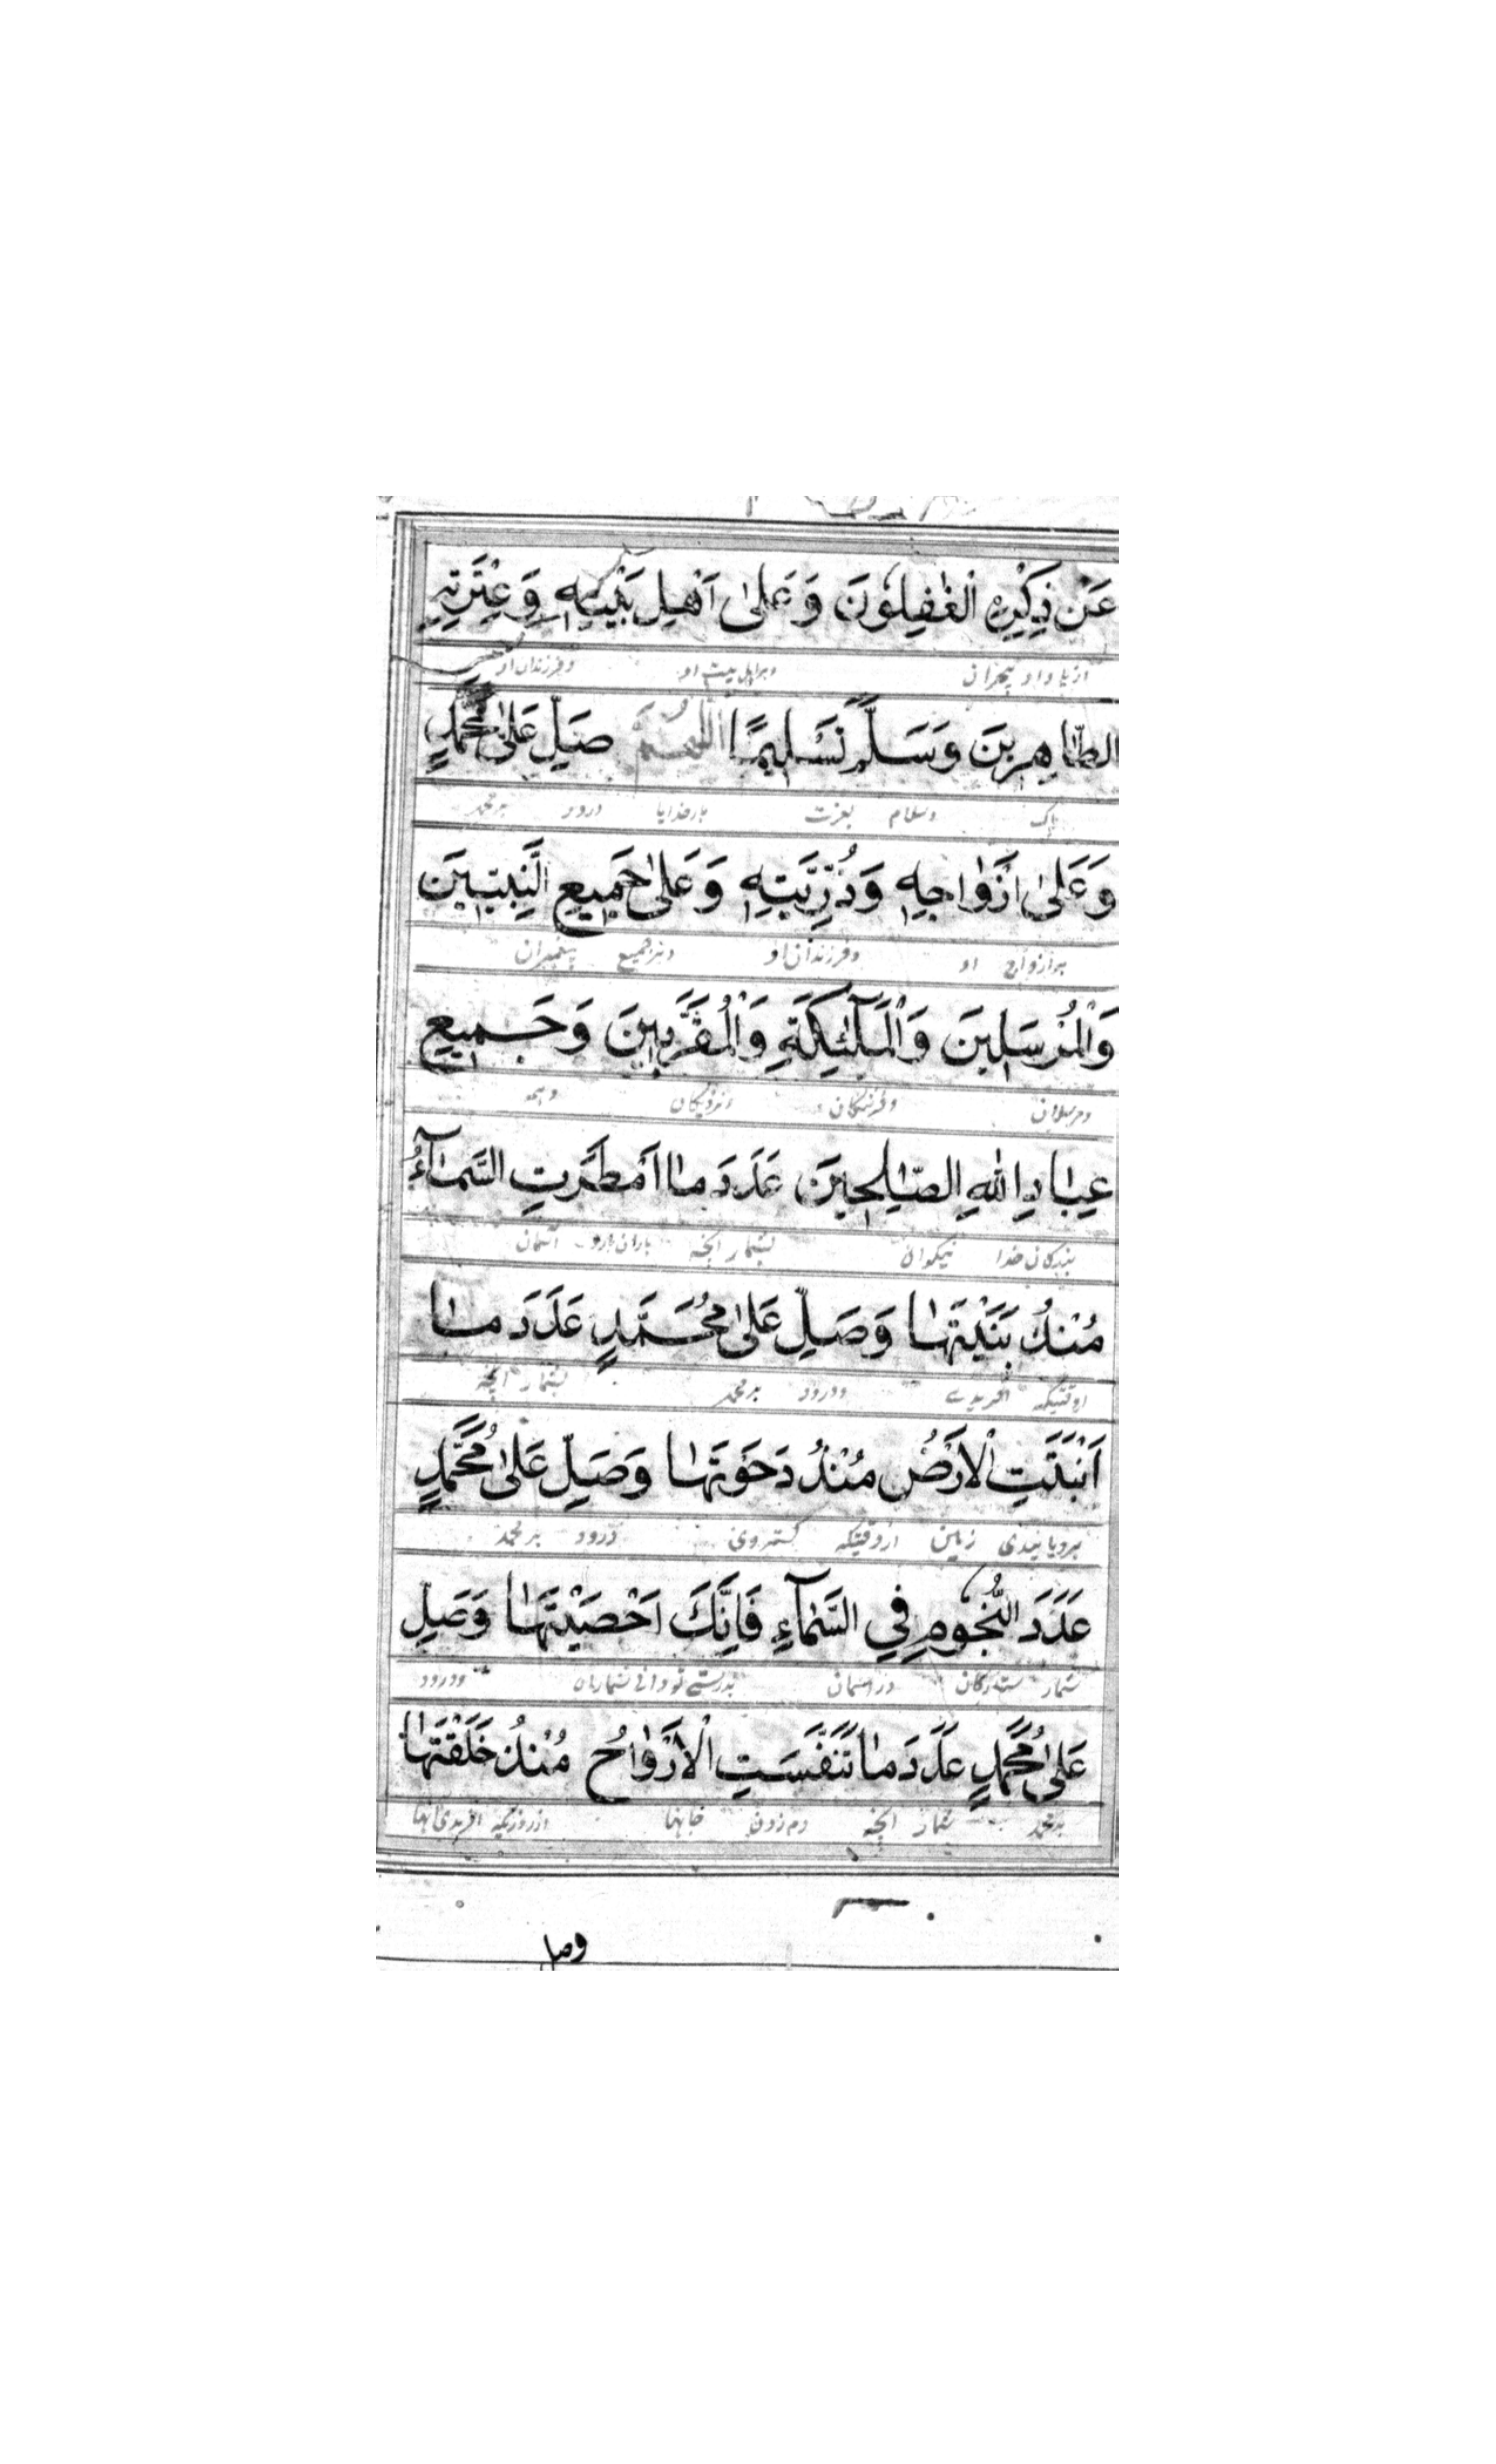 عَنْ ذِكْرِهِ الْغٰفِلُوْنَ وَعَلٰى اَهْلِ بَيْتِهِ وَعِتْرَتِهِ
وبراهل بيت او وفرزندان او
الطَّاهِرِيْنَ وَسَلَّمَ تَسْلِيْمًا اللّٰهُمَّ صَلِّ عَلٰى مُحَمَّدٍ
پاک وسلام بعزت بارخدايا درود برمحمد
وَعَلٰى اَزْوَاجِهِ وَذُرِّيَّتِهِ وَعَلٰى جَمِيْعِ النَّبِيِّيْنَ
برازواج او وفرزندان او وبرجميع پيغمبران
وَالْمُرْسَلِيْنَ وَالْمَلٰٓئِكَةِ وَالْمُقَرَّبِيْنَ وَجَمِيْعِ
ومرسلان وفرشتگان ونزديكان وهمه
عِبَادِ اللّٰهِ الصّٰلِحِيْنَ عَدَدَ مَا اَمْطَرَتِ السَّمَآءُ
بندگان خدا نيكوان بشمار آنچه باران بارد آسمان
مُنْذُ بَنَيْتَهَا وَصَلِّ عَلٰى مُحَمَّدٍ عَدَدَ مَا
ازوقتيكه آفريدے ودرود برمحمد بشمار آنچه
اَنْبَتَتِ الْاَرْضُ مُنْذُ دَحَوْتَهَا وَصَلِّ عَلٰى مُحَمَّدٍ
برويانيدى زمين ازوقتيكه گستردى درود برمحمد
عَدَدَ النُّجُوْمِ فِي السَّمَآءِ فَاِنَّكَ اَحْصَيْتَهَا وَصَلِّ
شمار ستارگان در آسمان بدرستے تو ودرود
عَلٰى مُحَمَّدٍ عَدَدَ مَا تَنَفَّسَتِ الْاَرْوَاحُ مُنْذُ خَلَقْتَهَا
برمحمد شمار آنچه دم زدن جانها ازروزيكه آفريدى آنها
وصل